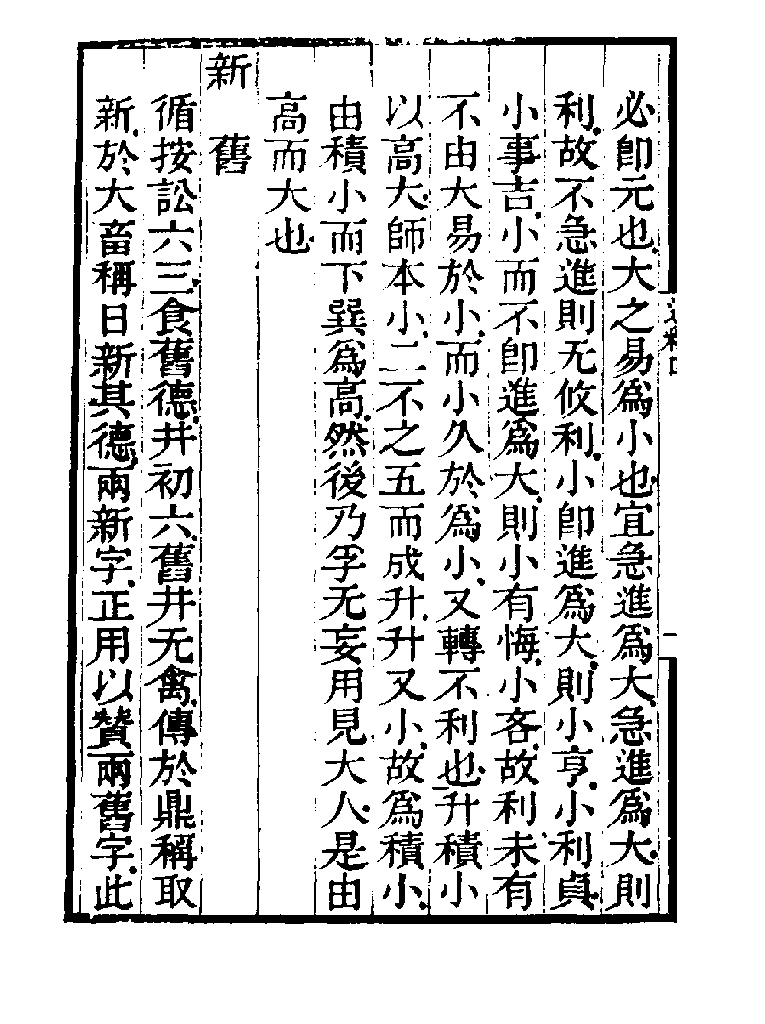 必卽元也大之易爲小也宜急進爲大急進爲大則
利故不急進則无攸利小卽進爲大則小亨小利貞
小事吉小而不卽進爲大則小有悔小吝故利未有
不由大易於小而小久於爲小又轉不利也升積小
以高大師本小二不之五而成升升又小故爲積小
由積小而下巽爲高然後乃孚无妄用見大人是由
高而大也
新舊
循按訟六三食舊德井初六舊井无禽傳於鼎稱取
新於大畜稱日新其德兩新字正用以贊兩舊字此